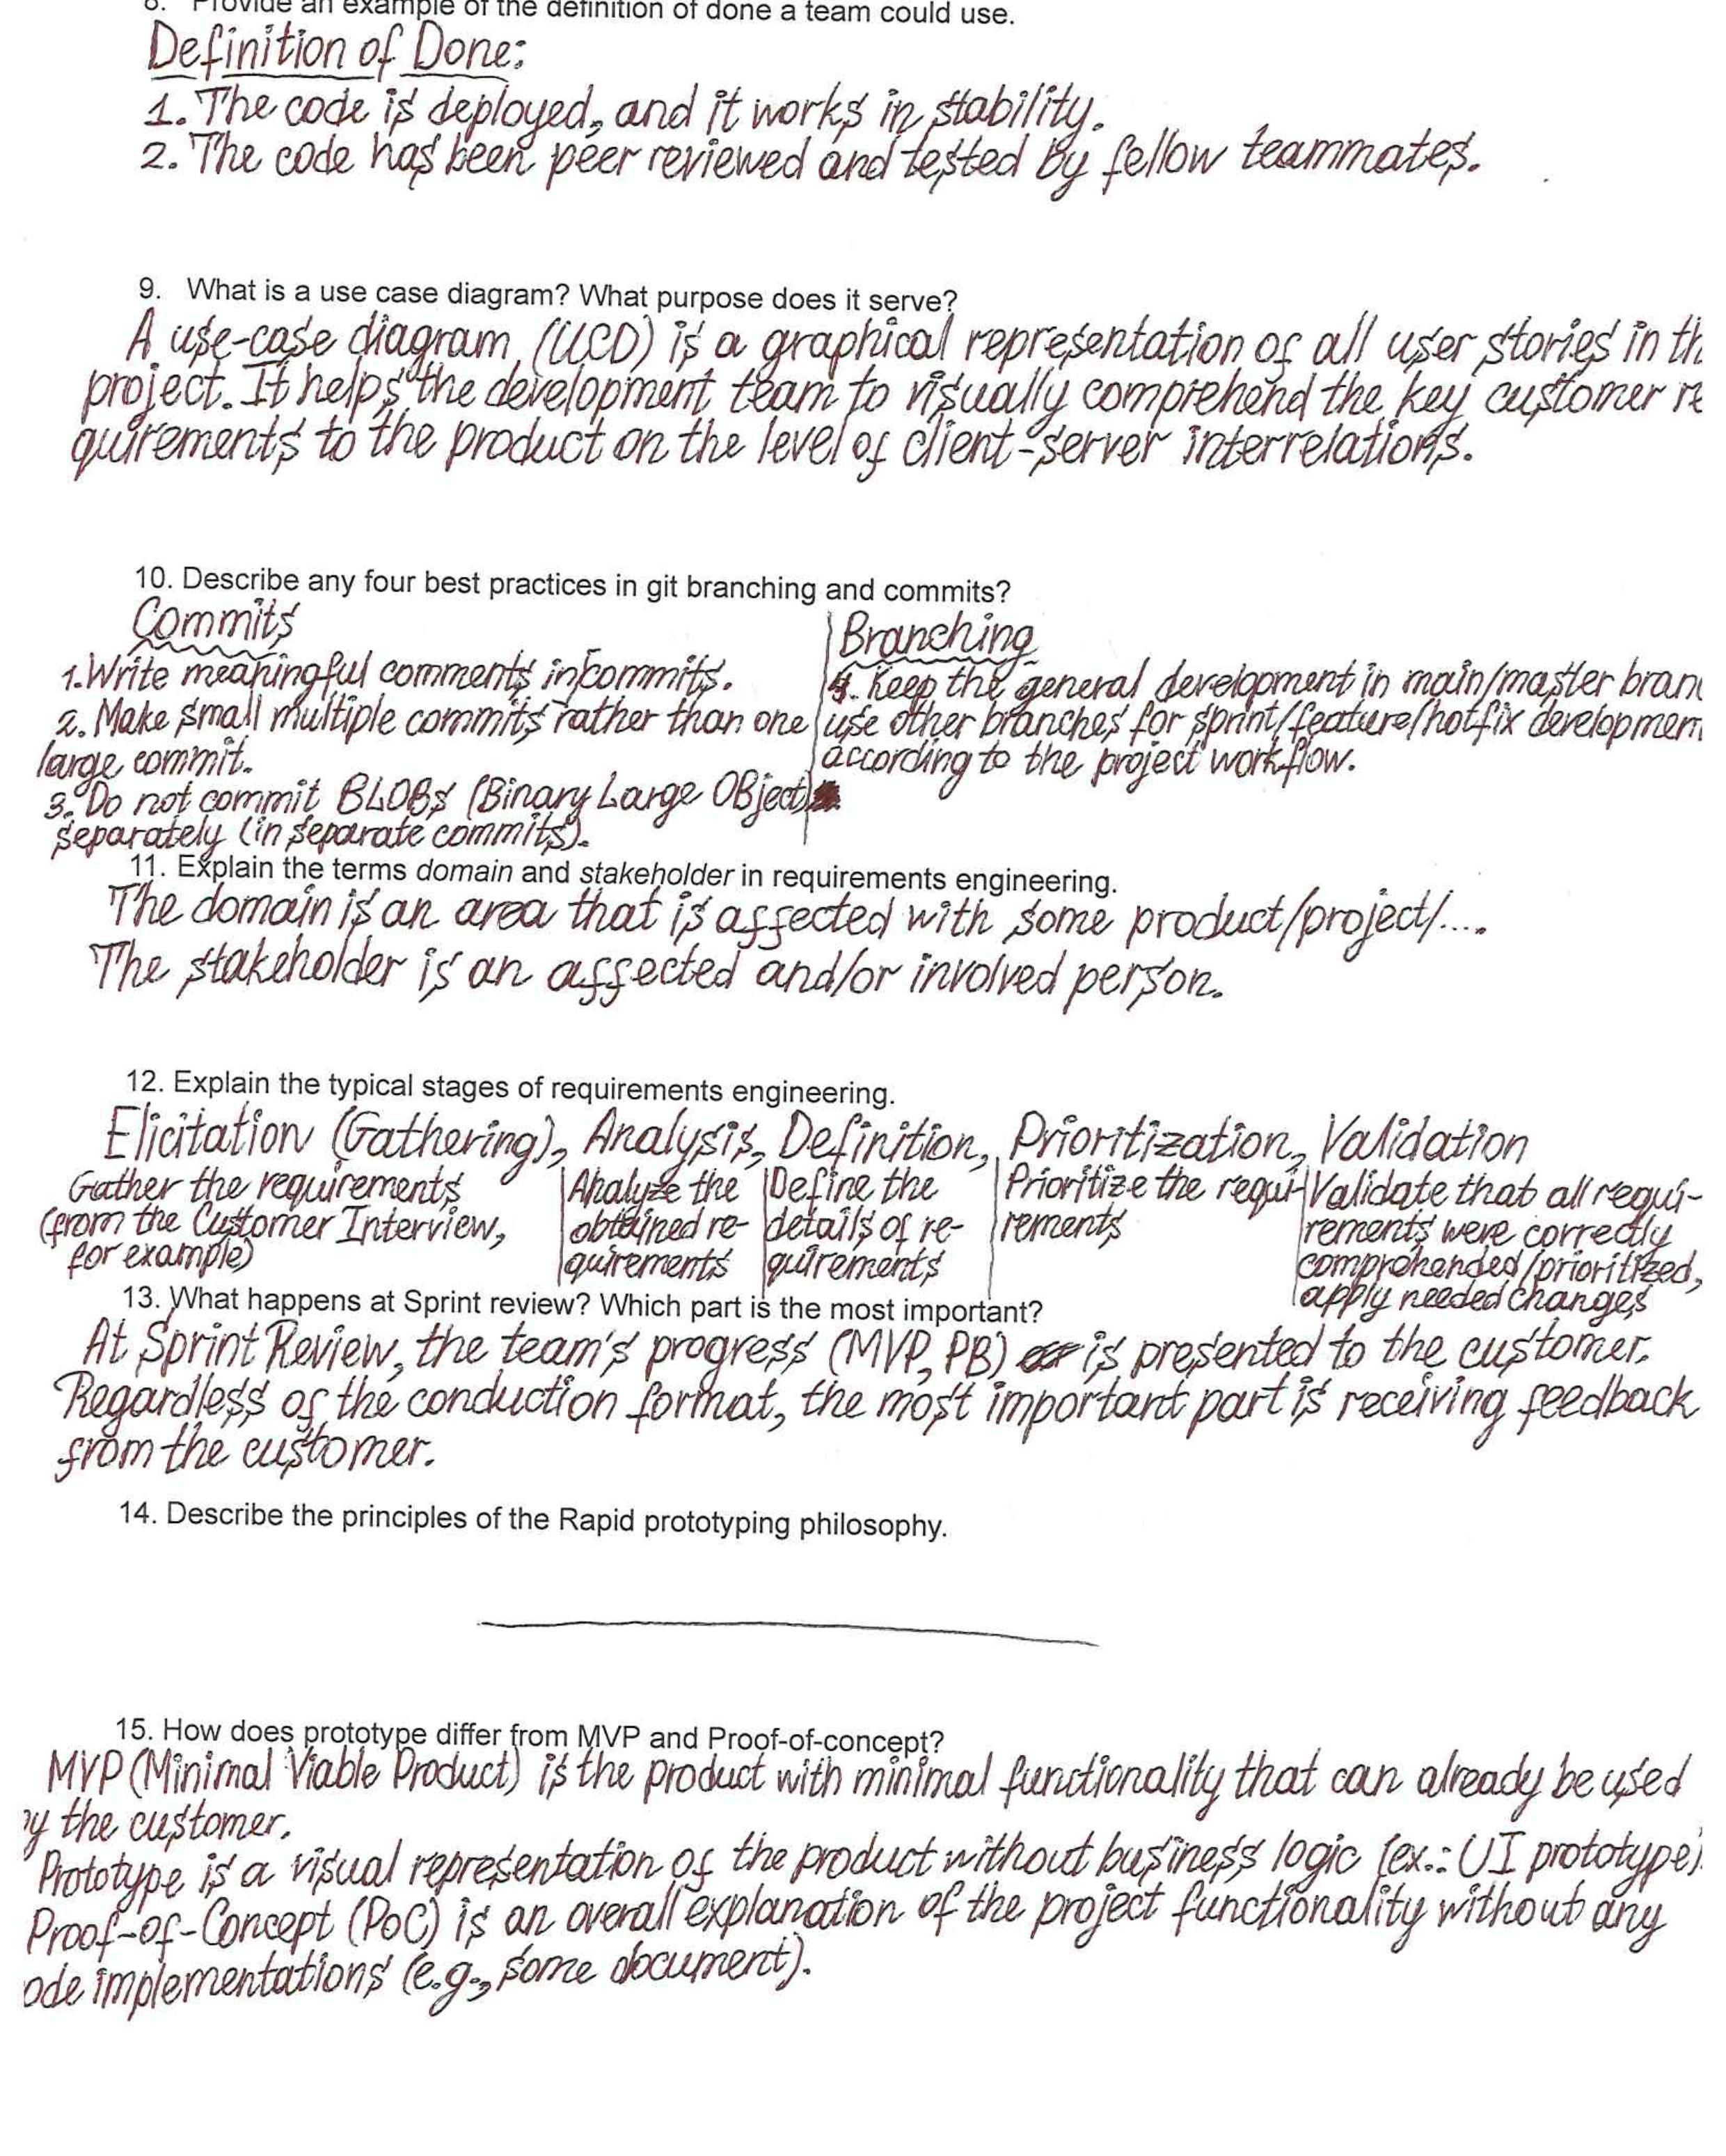 8. Provide an example of the definition of done a team could use.
Definition of Done:
1. The code is deployed, and it works in stability.
2. The code has been peer reviewed and tested by fellow teammates.
9. What is a use case diagram? What purpose does it serve?
A use-case diagram (UCD) is a graphical representation of all user stories in th
project. It helps the development team to visually comprehend the key customer re
quirements to the product on the level of client-server interrelations.
10. Describe any four best practices in git branching and commits?
Commits
1. Write meaningful comments in commits.
2. Make small multiple commits rather than one
large commit.
3. Do not commit BLOBs (Binary Large OBject)
separately (in separate commits).
Branching
4. Keep the general development in main/master bran
use other branches for sprint/feature/hotfix developmen
according to the project workflow.
11. Explain the terms domain and stakeholder in requirements engineering.
The domain is an area that is affected with some product/project/....
The stakeholder is an affected and/or involved person.
12. Explain the typical stages of requirements engineering.
Elicitation (Gathering), Analysis, Definition, Prioritization, Validation
Gather the requirements
(from the Customer Interview,
for example)
Analyze the
obtained re-
quirements
Define the
details of re-
quirements
Prioritize the requi-
rements
Validate that all requi-
rements were correctly
comprehended/prioritized,
apply needed changes
13. What happens at Sprint review? Which part is the most important?
At Sprint Review, the team's progress (MVP, PB) is presented to the customer.
Regardless of the conduction format, the most important part is receiving feedback
from the customer.
14. Describe the principles of the Rapid prototyping philosophy.
15. How does prototype differ from MVP and Proof-of-concept?
MVP (Minimal Viable Product) is the product with minimal functionality that can already be used
y the customer.
Prototype is a visual representation of the product without business logic (ex.: UI prototype).
Proof-of-Concept (PoC) is an overall explanation of the project functionality without any
ode implementations (e.g., some document).